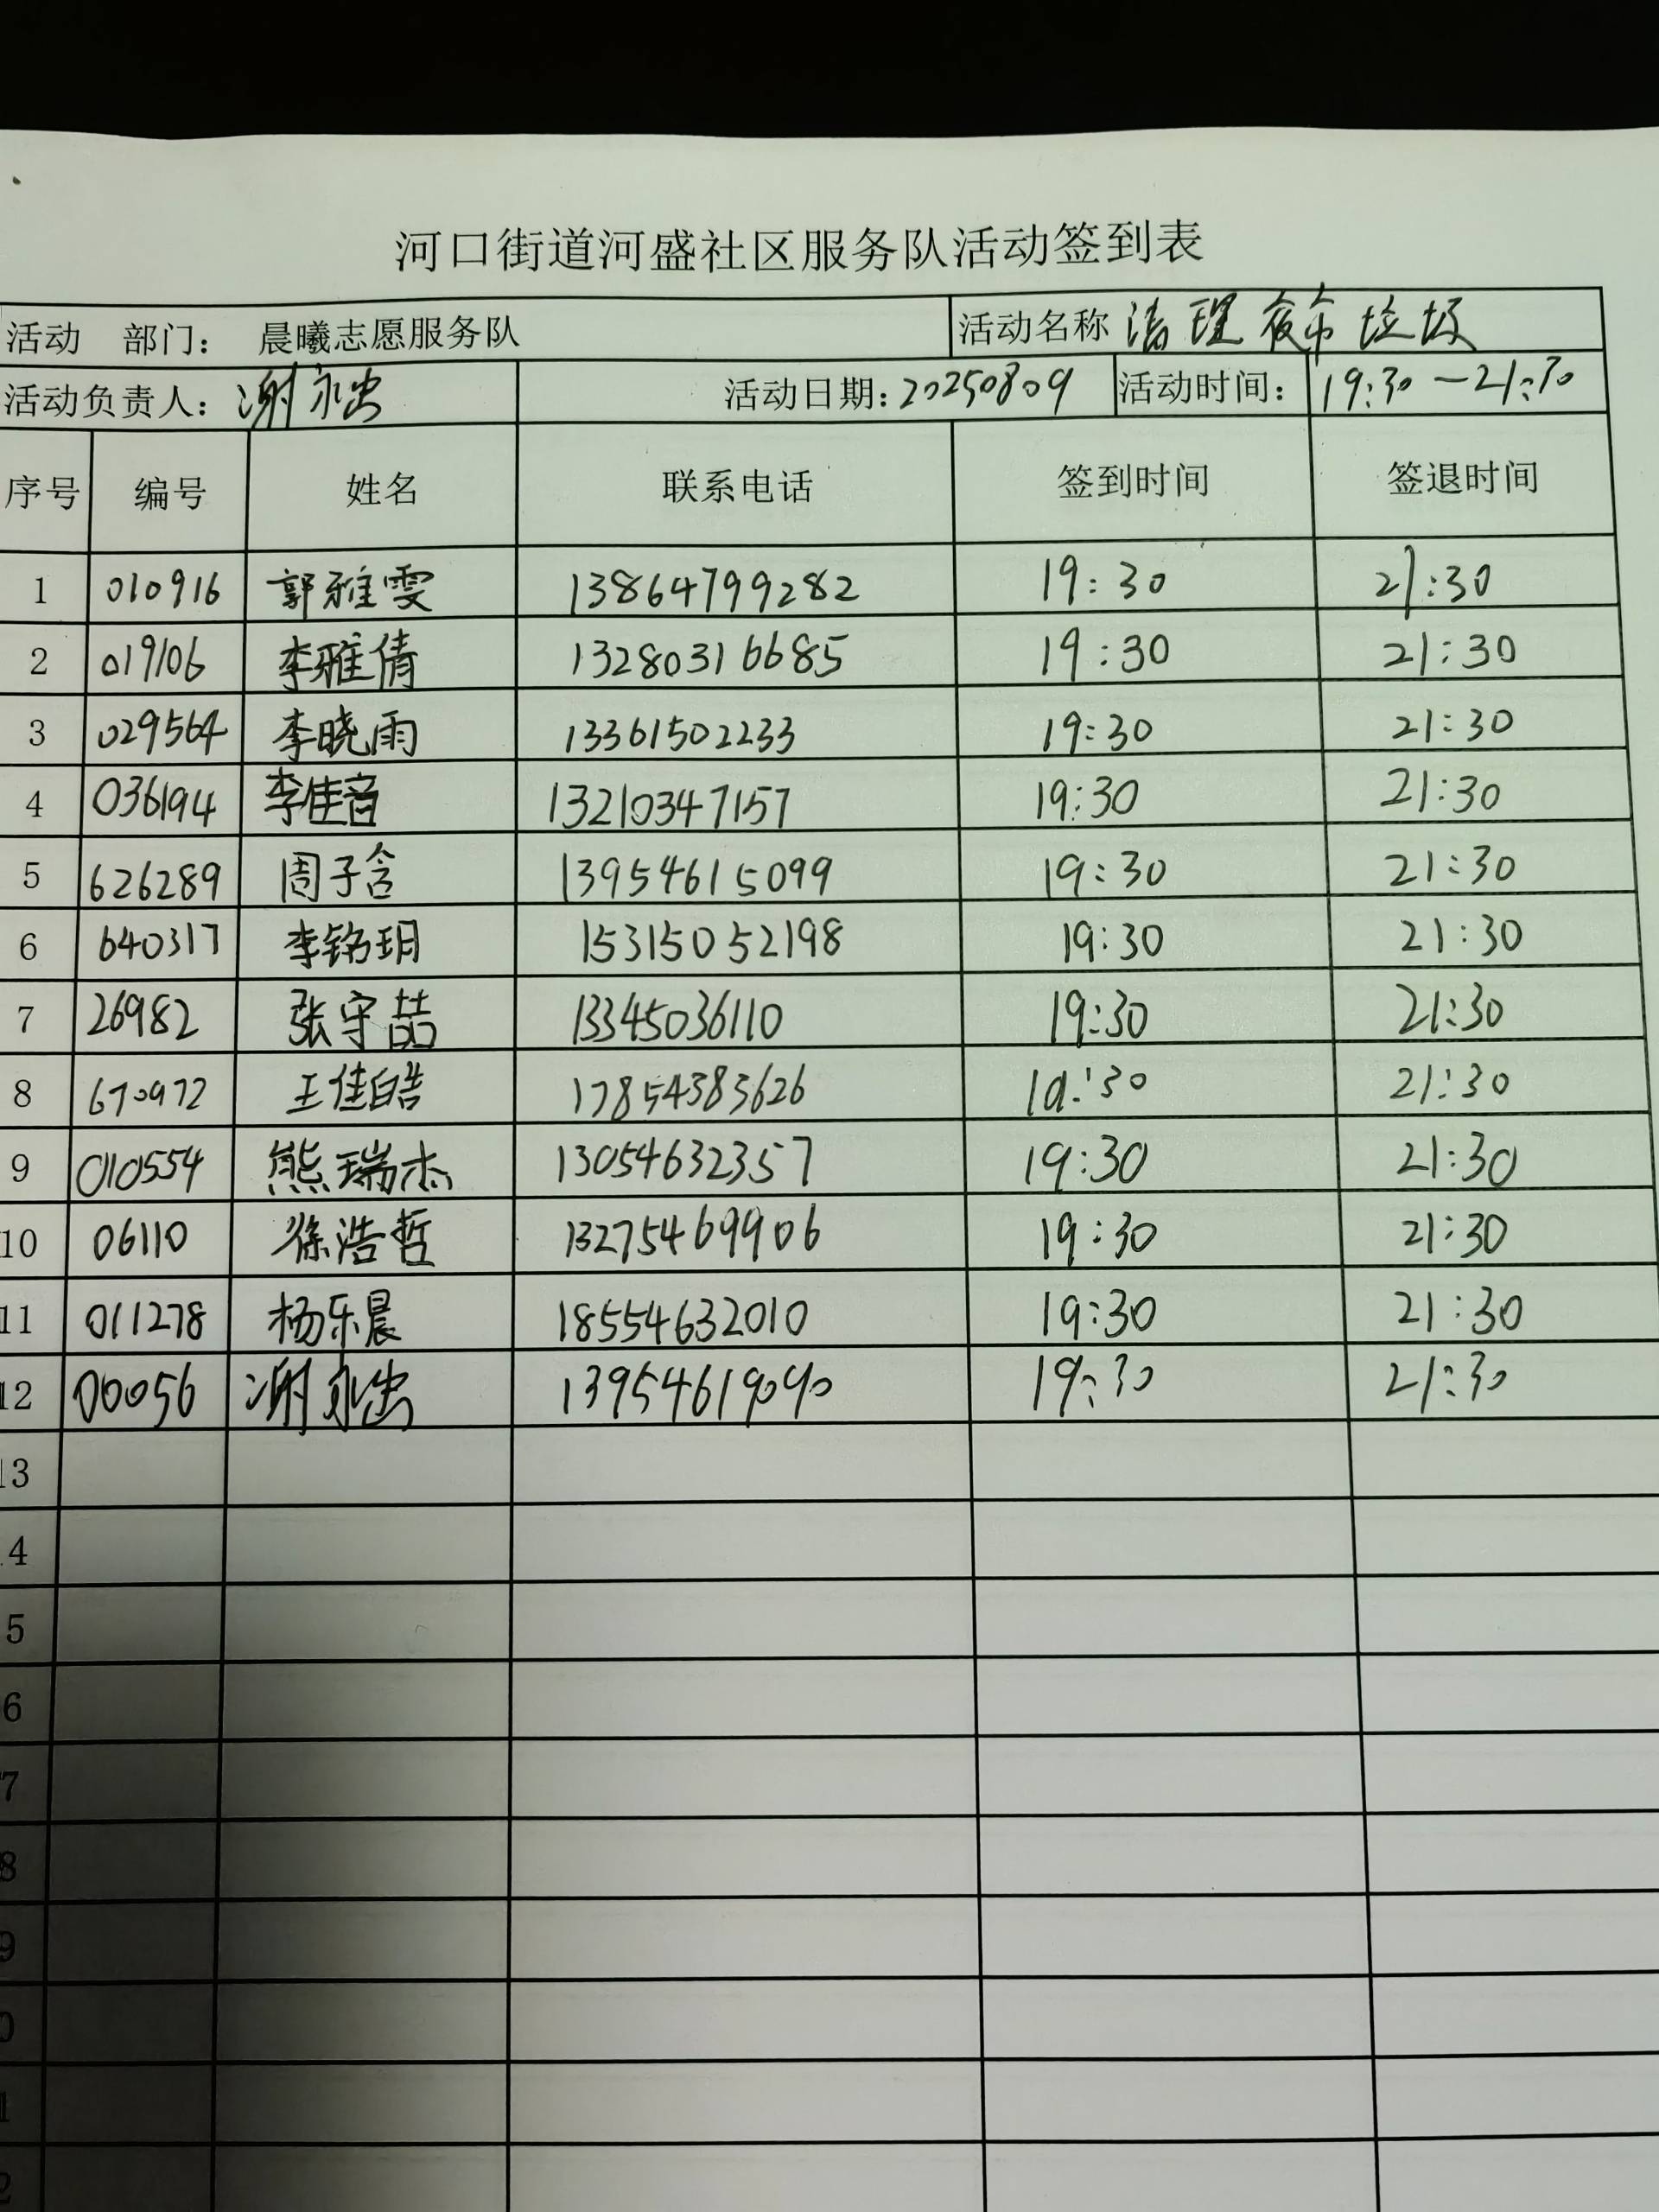 河口街道河盛社区服务队活动签到表
活动 部门： 晨曦志愿服务队 活动名称 清理夜市垃圾
活动负责人：谢永忠 活动日期：20250809 活动时间： 19:30-21:30
序号 编号 姓名 联系电话 签到时间 签退时间
1 010916 郭雅雯 13864799282 19:30 21:30
2 019106 李雅倩 13280316685 19:30 21:30
3 029564 李晓雨 13361502233 19:30 21:30
4 036194 李佳音 13210347157 19:30 21:30
5 626289 周子含 13954615099 19:30 21:30
6 640317 李铭玥 15315052198 19:30 21:30
7 26982 张守喆 13345036110 19:30 21:30
8 670972 王佳皓 17854383626 19:30 21:30
9 010554 熊瑞杰 13054632357 19:30 21:30
10 06110 徐浩哲 13275469906 19:30 21:30
11 011278 杨乐晨 18554632010 19:30 21:30
12 00056 谢永忠 13954619090 19:30 21:30
13
4
5
6
7
8
9
0
1
2